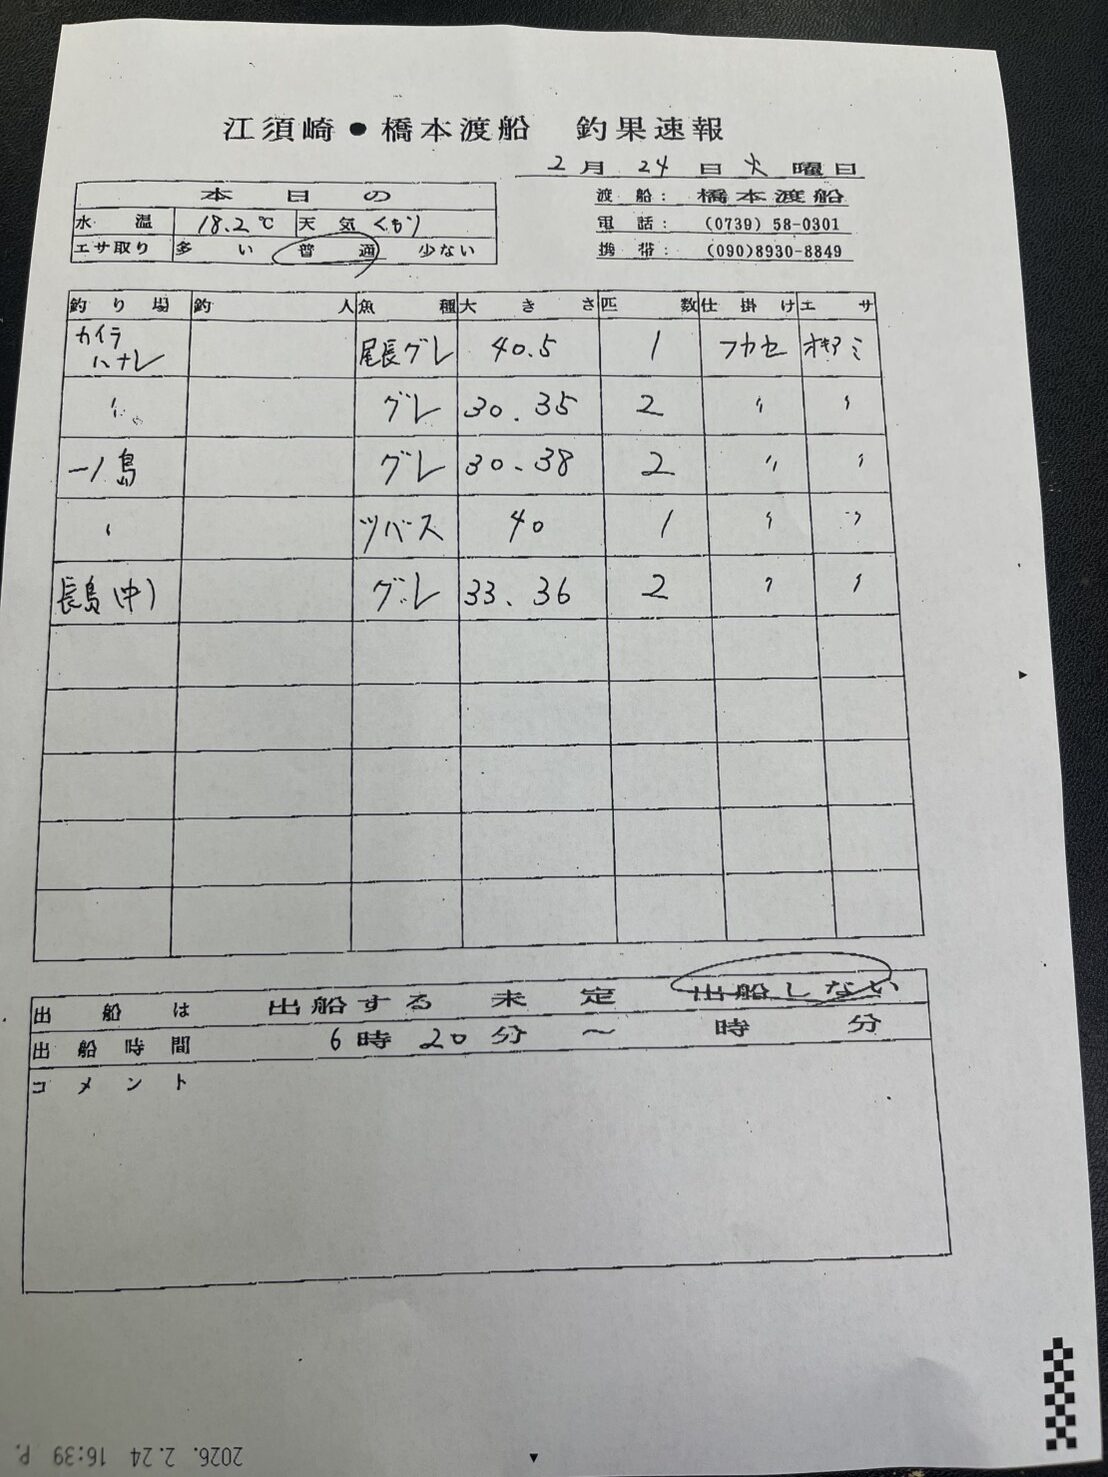 江須崎・橋本渡船 釣果速報
2月 24日 火曜日
本日の
水温 18.2℃ 天気 くもり
エサ取り 多い 普通 少ない
渡船: 橋本渡船
電話: (0739) 58-0301
携帯: (090)8930-8849
釣り場 釣人 魚種 大きさ 匹数 仕掛け エサ
カイラハナレ 尾長グレ 40.5 1 フカセ オキアミ
〃 グレ 30.35 2 〃 〃
一ノ島 グレ 30.38 2 〃 〃
〃 ツバス 40 1 〃 〃
長島(中) グレ 33.36 2 〃 〃
出船は 出船する 未定 出船しない
出船時間 6時20分 ~ 時 分
コメント
2026. 2.24 16:39 P.